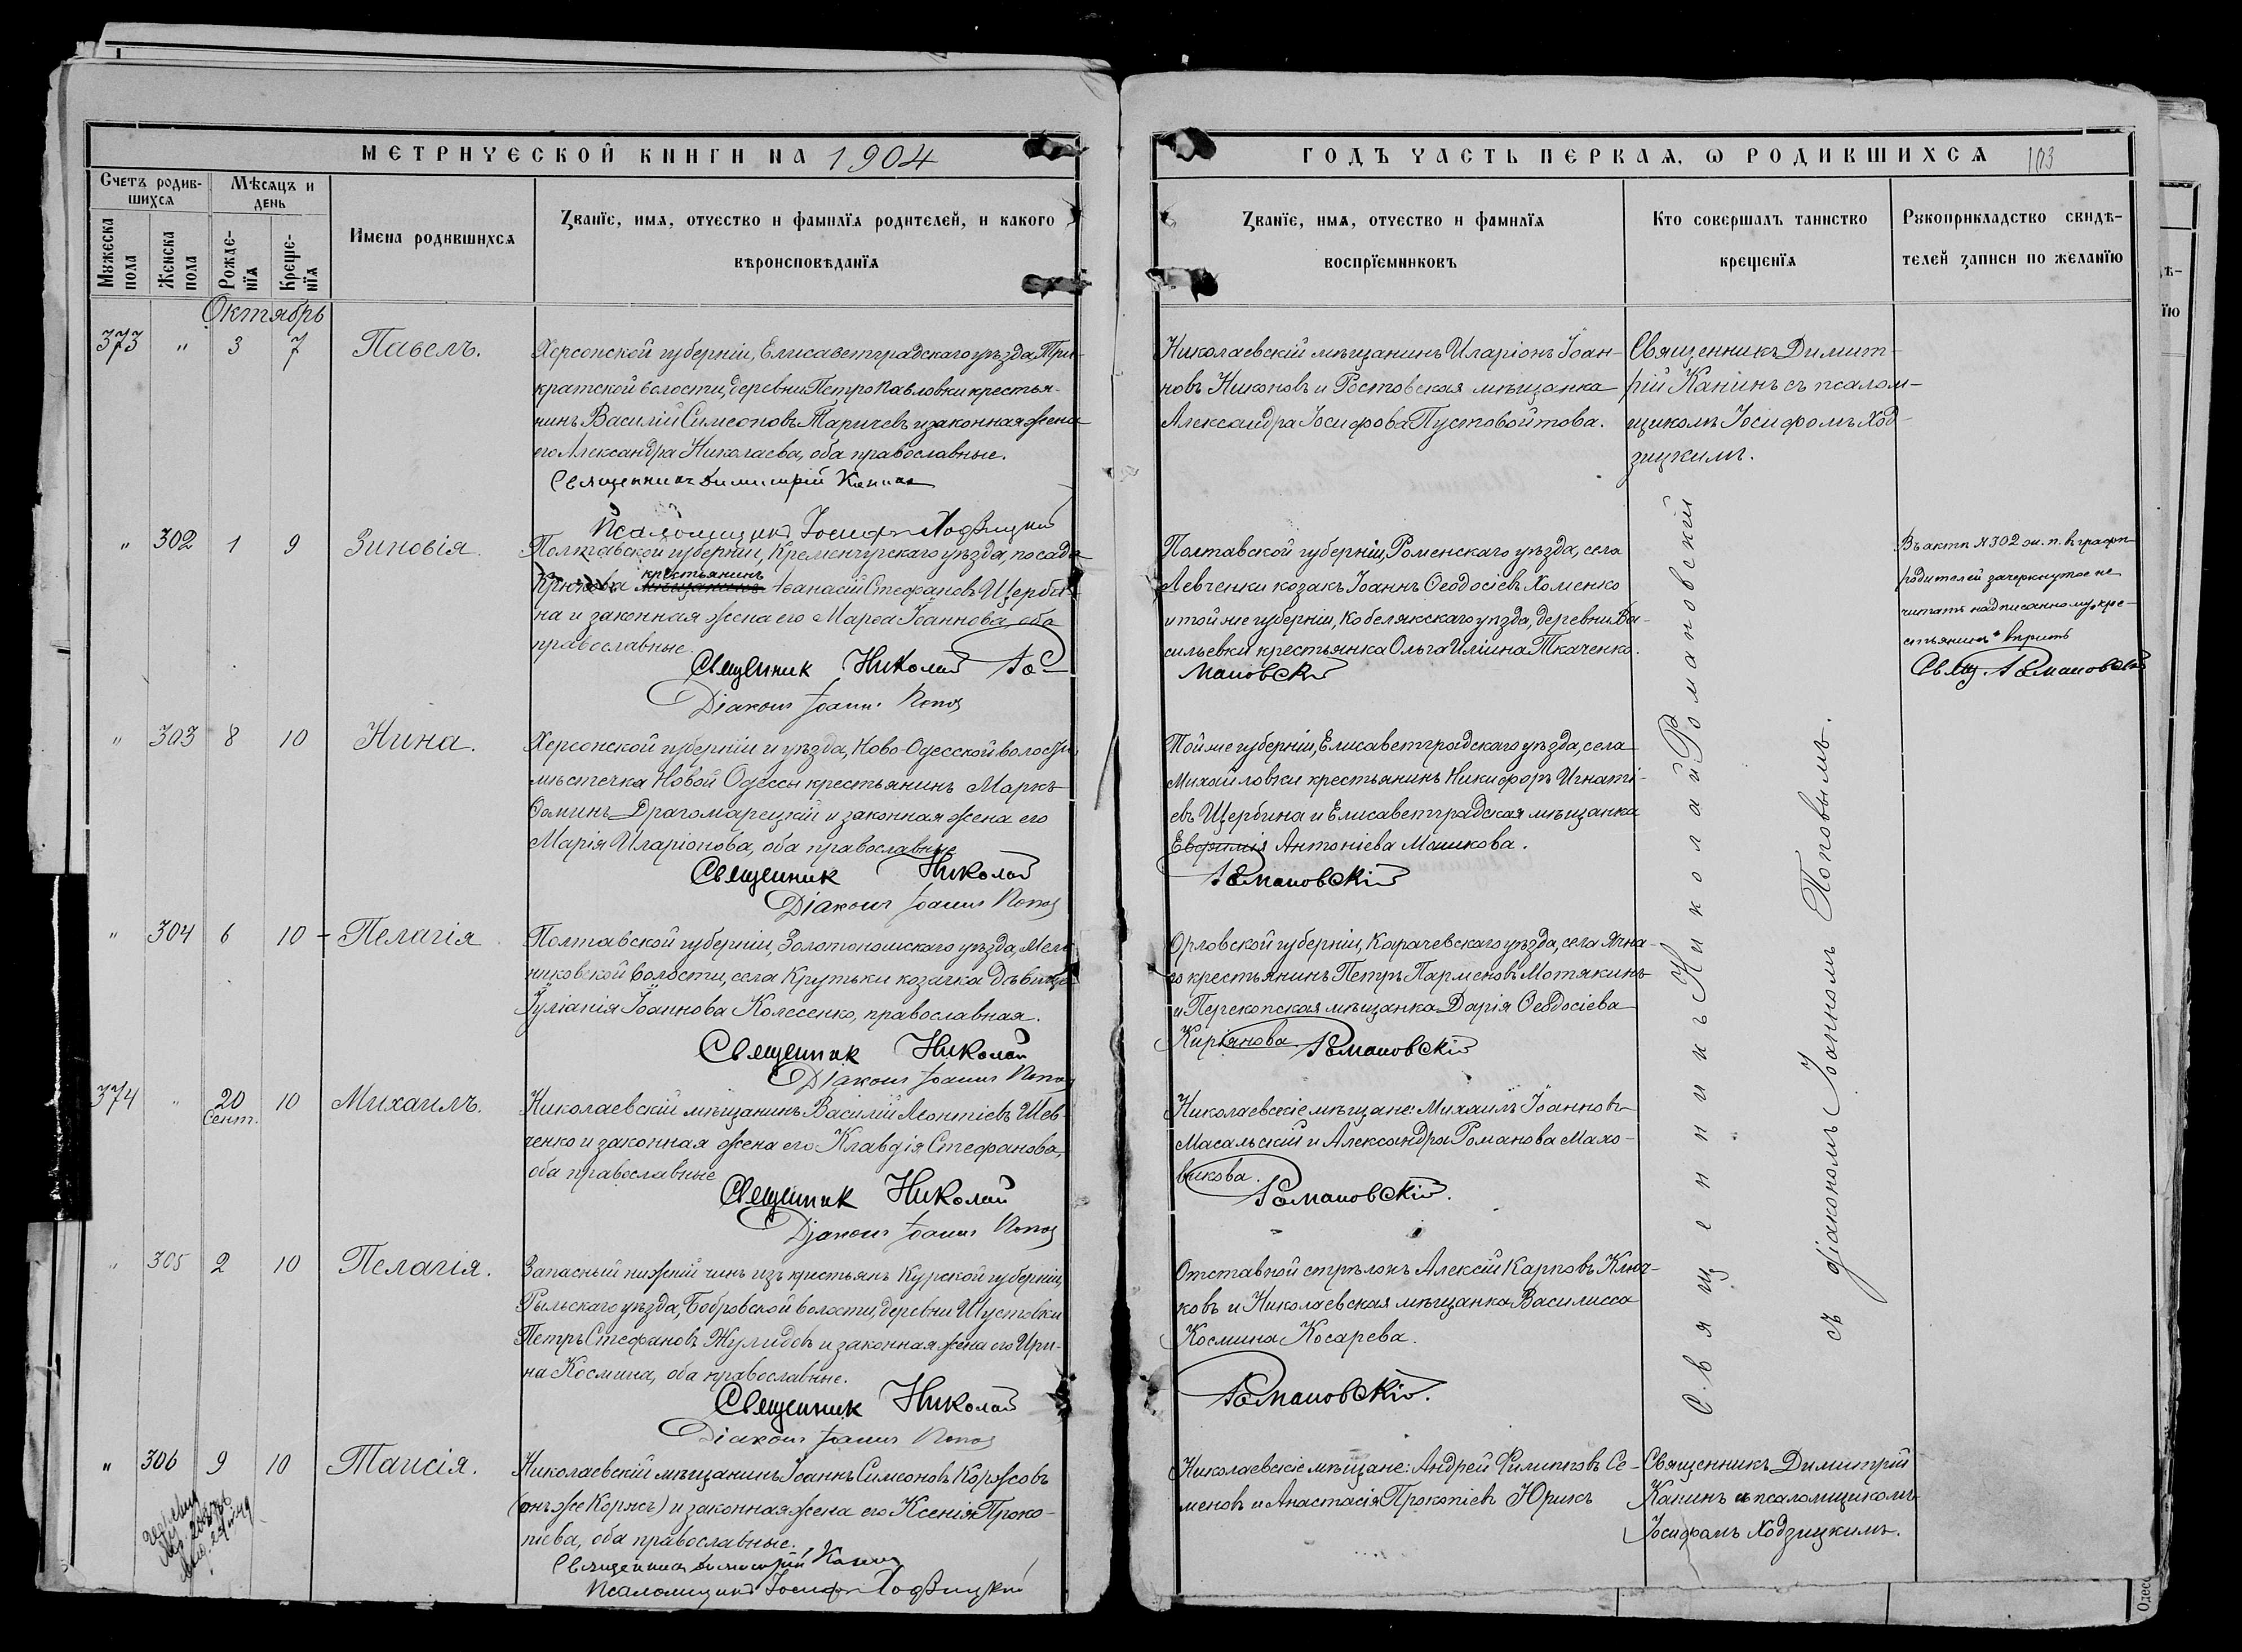 МЕТРИЧЕСКОЙ КНИГИ НА 1904
ГОДЪ ЧАСТЬ ПЕРВАЯ, Ѡ РОДИВШИХСЯ 103
Счетъ родив-
шихся
Мѣсяцъ и
день
Мужеска
пола
Женска
пола
Рожде-
нїя
Креще-
нїя
Имена родившихся
Званїе, имя, отчество и фамилїя родителей, и какого
вѣроисповѣданїя
Званїе, имя, отчество и фамилїя
воспрїемниковъ
Кто совершалъ таинство
крещенїя
Рукоприкладство свидѣ-
телей записи по желанїю
Октябрь
373 " 3 7 Павелъ.
Херсонской губерніи, Елисаветградскаго уѣзда, Три-
кратской волости, деревни Петропавловки крестья-
нинъ Василій Симеоновъ Таричевъ и законная жена
его Александра Николаева, оба православные.
Священникъ Димитрій Канинъ
Псаломщикъ Іосифъ Ходзицкій
Николаевскій мѣщанинъ Иларіонъ Іоан-
новъ Никоновъ и Ростовская мѣщанка
Александра Іосифова Пустовойтова.
Священникъ Димит-
рій Канинъ съ псалом-
щикомъ Іосифомъ Ход-
зицкимъ.
" 302 1 9 Зиновія.
Полтавской губерніи, Кременчугскаго уѣзда, посада
крестьянинъ
Крюкова мѣщанинъ Аѳанасій Стефановъ Щерби-
на и законная жена его Марѳа Іоаннова, оба
православные.
Священникъ Николай Ро-
Діаконъ Іоаннъ Поповъ
Полтавской губерніи, Роменскаго уѣзда, села
Левченки козакъ Іоаннъ Ѳеодосіевъ Хоменко
и той же губерніи, Кобелякскаго уѣзда, деревни Ва-
сильевки крестьянка Ольга Иліина Ткаченко.
мановскій
Въ актѣ № 302 ж. п. въ графѣ
родителей зачеркнутое не
читать надписанному „кре-
стьянинъ" вѣрить
Свящ. Романовскій
" 303 8 10 Нина.
Херсонской губерніи и уѣзда, Ново-Одесской волости,
мѣстечка Новой Одессы крестьянинъ Маркъ
Ѳоминъ Драгомарецкій и законная жена его
Марія Иларіонова, оба православные
Священникъ Николай
Діаконъ Іоаннъ Поповъ
Той же губерніи, Елисаветградскаго уѣзда, села
Михайловки крестьянинъ Никифоръ Игнаті-
евъ Щербина и Елисаветградская мѣщанка
Евфимія Антоніева Машкова.
Романовскій
" 304 6 10 Пелагія
Полтавской губерніи, Золотоношскаго уѣзда, Мель-
никовской волости, села Крутьки козачка дѣвица
Іуліанія Іоаннова Колесенко, православная.
Священникъ Николай
Діаконъ Іоаннъ Поповъ
Орловской губерніи, Карачевскаго уѣзда, села Ячна-
го крестьянинъ Петръ Парменовъ Мотякинъ
и Перекопская мѣщанка Дарія Ѳеодосіева
Кирьянова.
Романовскій
374 " 20 10 Михаилъ.
Сент.
Николаевскій мѣщанинъ Василій Леонтіевъ Шев-
ченко и законная жена его Клавдія Стефанова,
оба православные
Священникъ Николай
Діаконъ Іоаннъ Поповъ
Николаевскіе мѣщане: Михаилъ Іоанновъ
Масальскій и Александра Романова Махо-
викова.
Романовскій.
" 305 2 10 Пелагія.
Запасный нижній чинъ изъ крестьянъ Курской губерніи,
Рыльскаго уѣзда, Бобровской волости, деревни Шустовки
Петръ Стефановъ Жулидовъ и законная жена его Ири-
на Космина, оба православные.
Священникъ Николай
Діаконъ Іоаннъ Поповъ
Отставной стрѣлокъ Алексій Карповъ Ключ-
ковъ и Николаевская мѣщанка Василисса
Космина Косарева.
Романовскій.
Священникъ Николай Романовскій
съ діакономъ Іоанномъ Поповымъ.
" 306 9 10 Таисія.
Николаевскій мѣщанинъ Іоаннъ Симеоновъ Коржовъ
(онъ же Коржъ) и законная жена его Ксенія Проко-
піева, оба православные.
Священникъ Димитрій Канинъ
Псаломщикъ Іосифъ Ходзицкій
Николаевскіе мѣщане: Андрей Филипповъ Се-
меновъ и Анастасія Прокопіевъ Юрикъ
Священникъ Димитрій
Канинъ съ псаломщикомъ
Іосифомъ Ходзицкимъ.